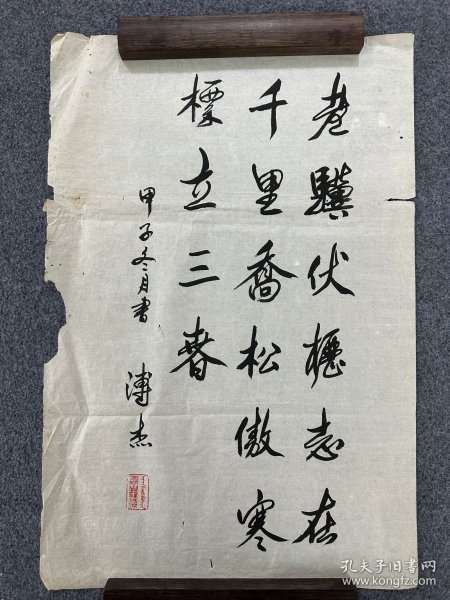 老骥伏櫪志在
千里喬松傲寒
標立三春
甲子冬月書 溥杰
孔夫子旧书网
www.kongfz.com